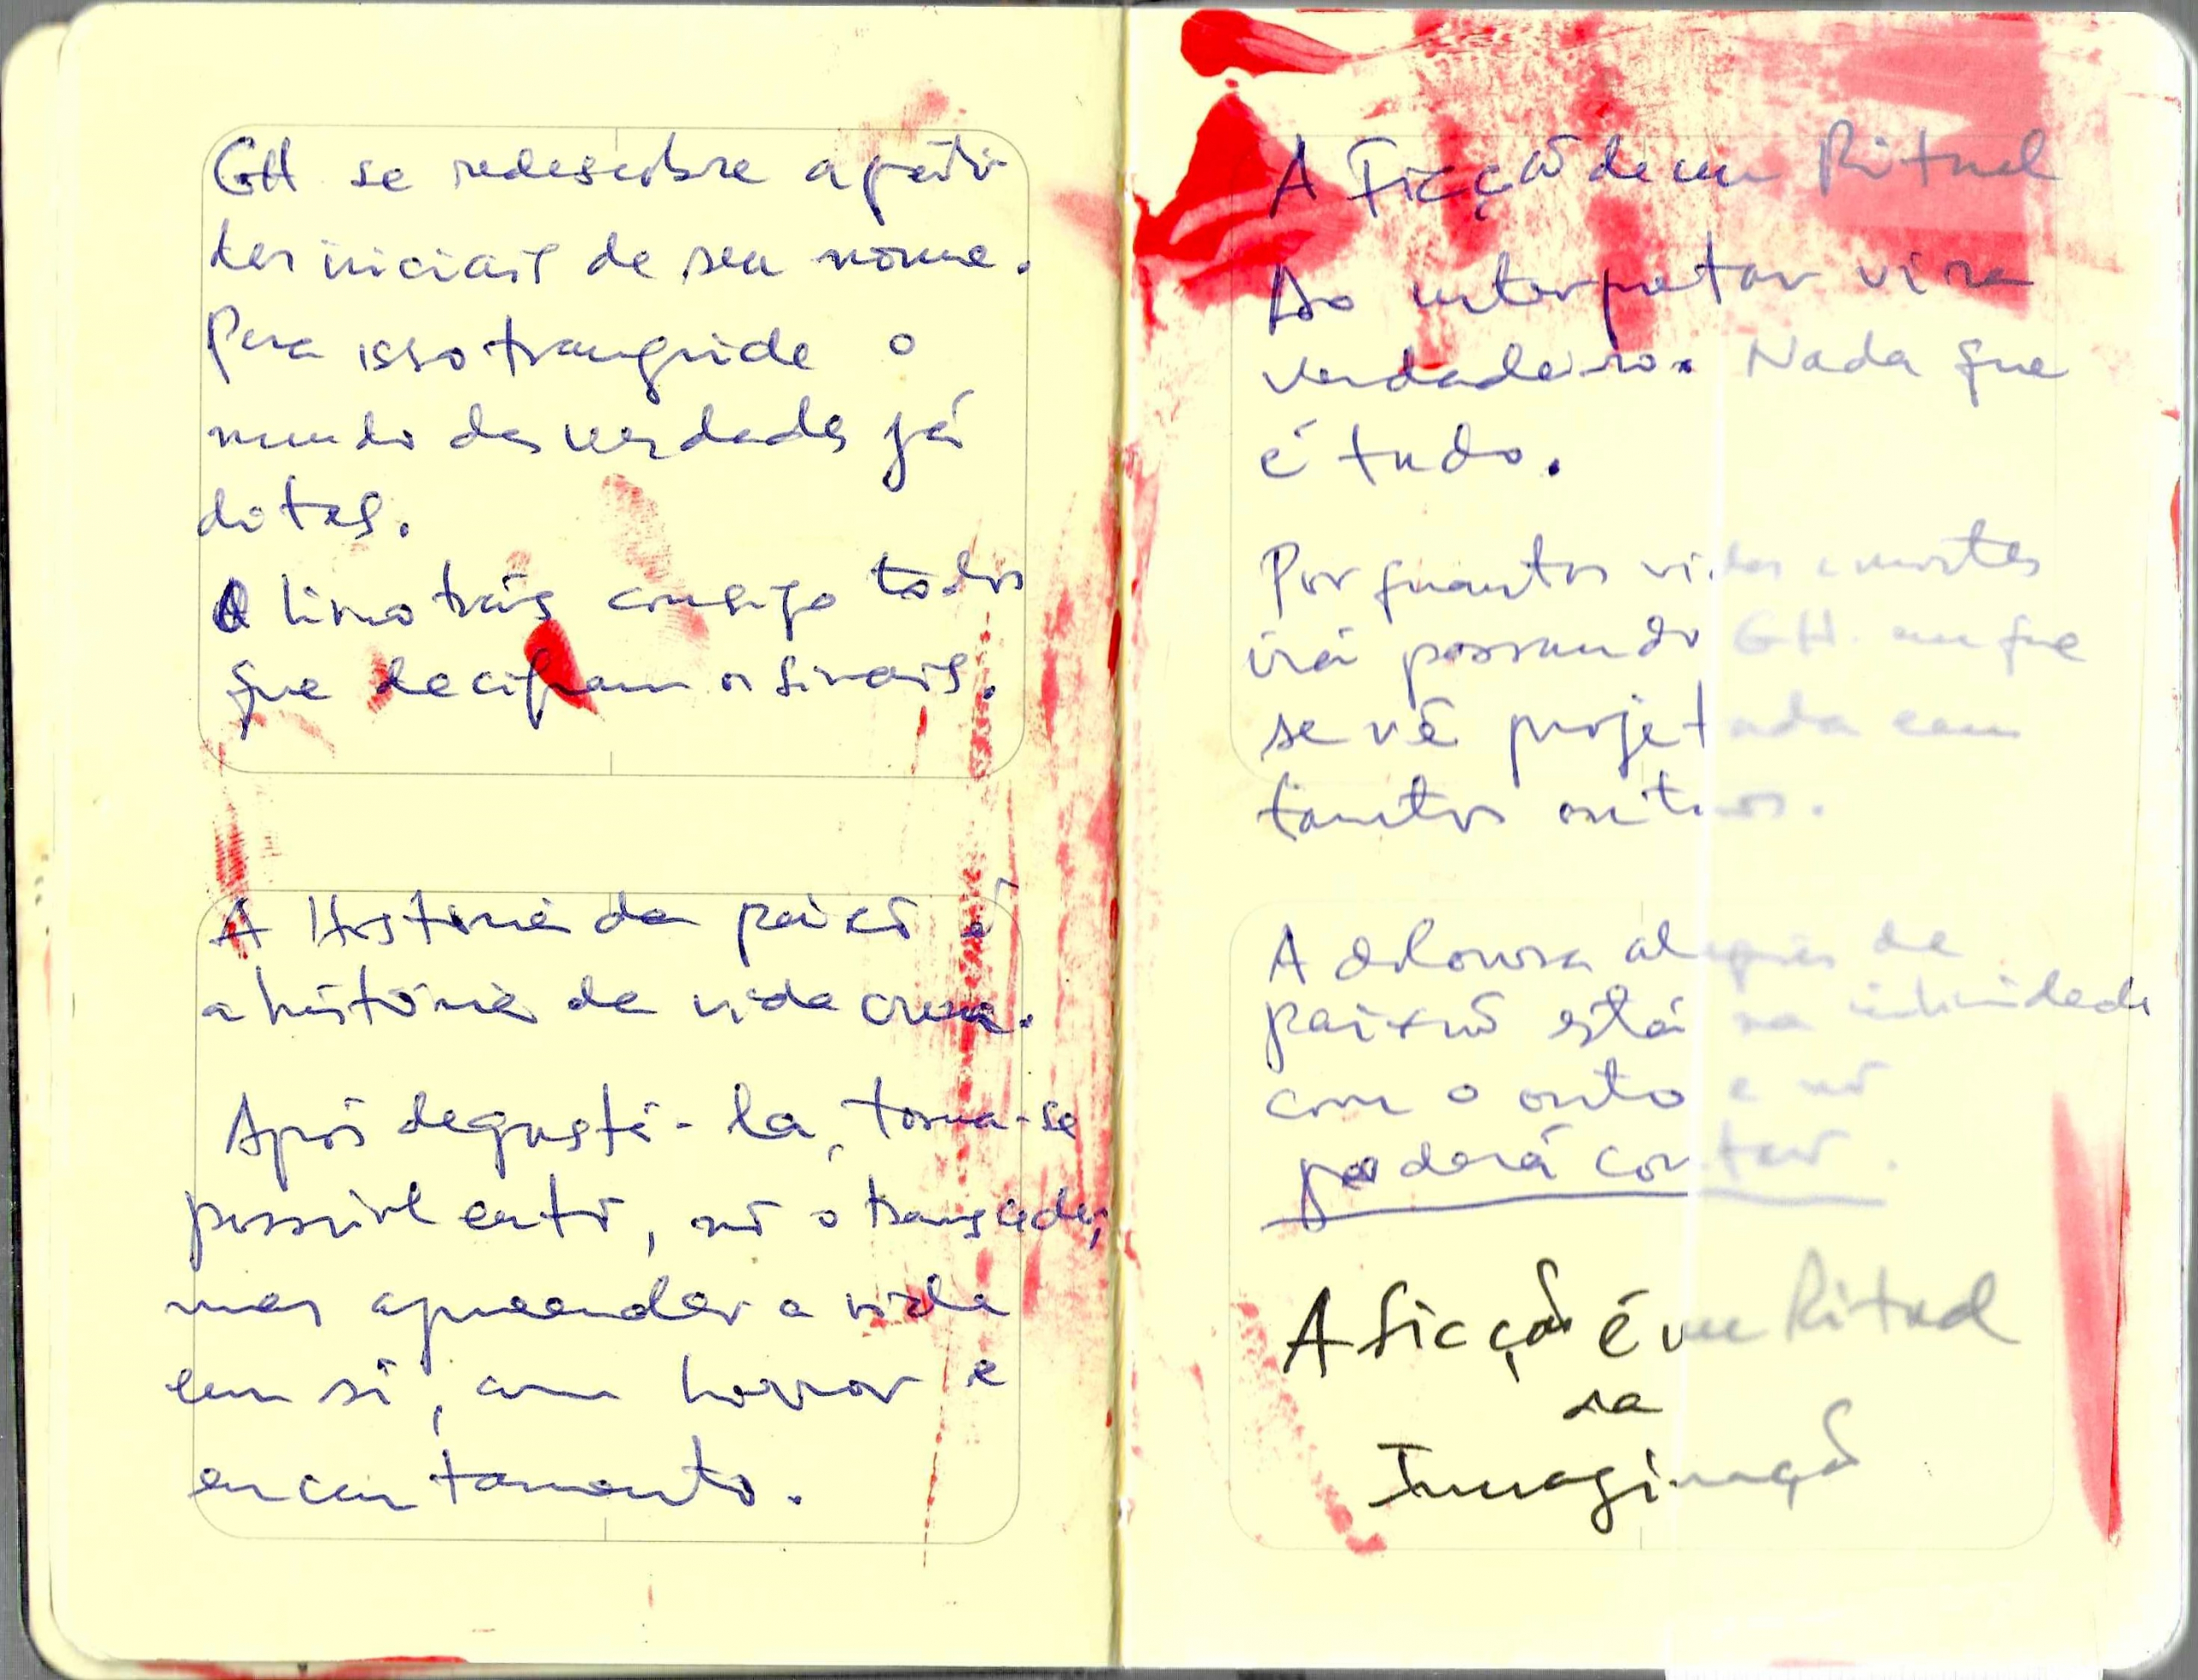 GH se redescobre a partir
das iniciais de seu nome.
Para isso transgride o
mundo das verdades já
ditas.
O livro trás consigo todos
que decifram os sinais.
A História da paixão é
a história da vida crua.
Após degustá-la, torna-se
possível então, não o transceder,
mas apreender a vida
em si, com horror e
encantamento.
A Ficção de um Ritual
Ao interpretar vira
verdadeiro. Nada que
é tudo.
Por quantas vidas e mortes
irá passando GH. em que
se vê projetada em
tantos outros.
A dolorosa alegria da
paixão está na intimidade
com o outro e não
poderá contar.
A ficção é um Ritual
da
Imaginação